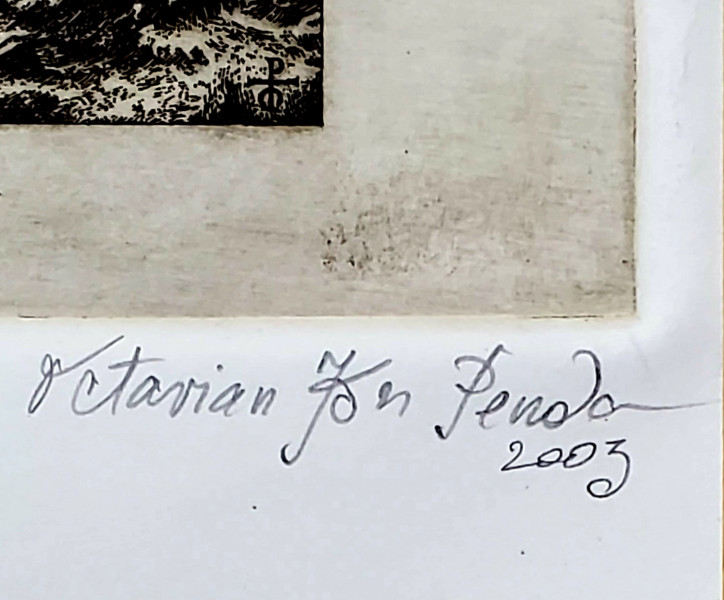 Octavian Ion Penda
2003